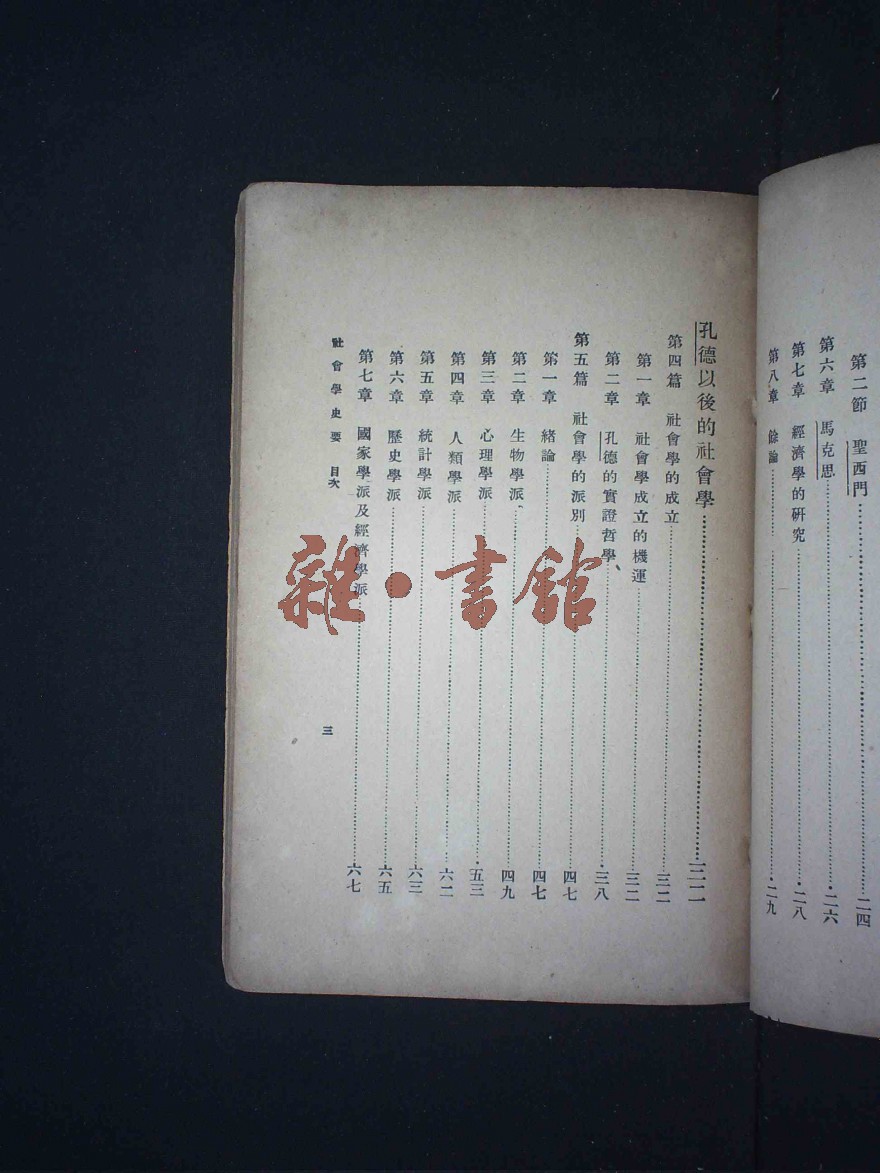 第二節 聖西門……二四
第六章 馬克思……二六
第七章 經濟學的研究……二八
第八章 餘論……二九
孔德以後的社會學……三二
第四篇 社會學的成立……三二
第一章 社會學成立的機運……三二
第二章 孔德的實證哲學……三八
第五篇 社會學的派別……四七
第一章 緒論……四七
第二章 生物學派……四九
第三章 心理學派……五三
第四章 人類學派……六二
第五章 統計學派……六三
第六章 歷史學派……六五
第七章 國家學派及經濟學派……六七
社會學史要 目次 三
雜·書館